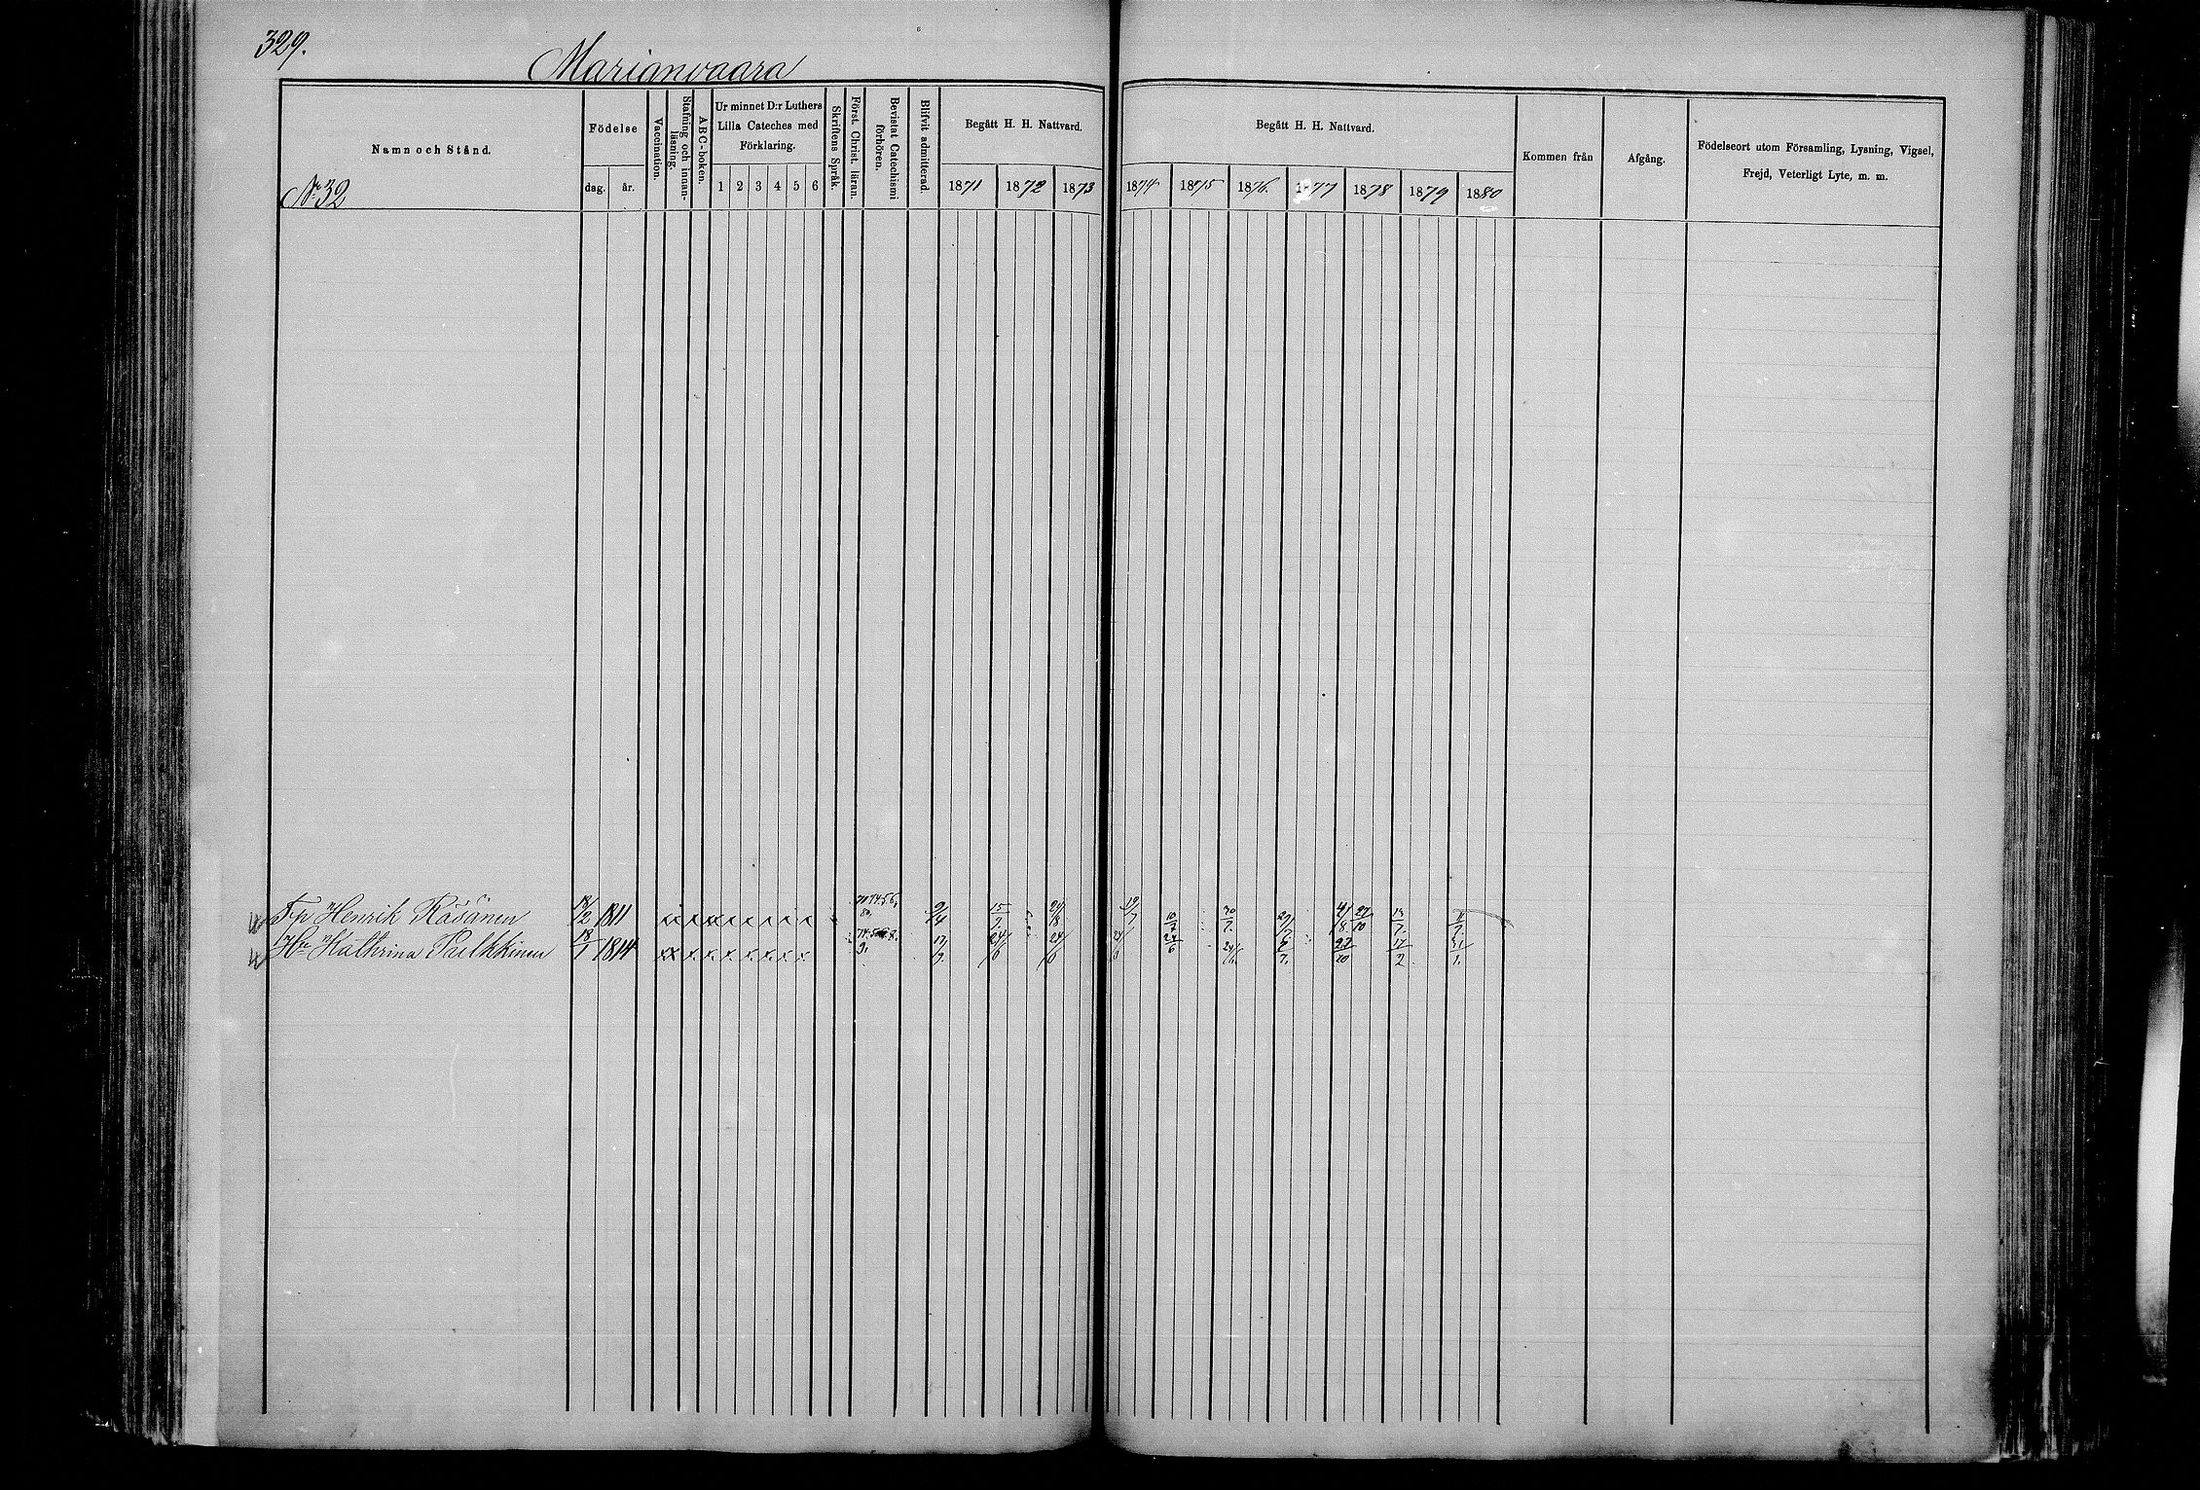 329.
Marianvaara
Namn och Stånd.
Födelse
dag. år.
Vaccination.
Stafning och innan-läsning.
ABC-boken.
Ur minnet D:r Luthers
Lilla Cateches med
Förklaring.
1 2 3 4 5 6
Skriftens Språk.
Först. Christ. läran.
Bevistat Catechismi förhören.
Blifvit admitterad
Begått H. H. Nattvard.
1871 1872 1873
Begått H. H. Nattvard.
1874 1875 1876. 1877 1878 1879 1880
Kommen från
Afgång.
Födelseort utom Församling, Lysning, Vigsel,
Frejd, Veterligt Lyte, m. m.
No 32
Henrik Räsänen 1811 x x x x x x 15/7. 19/7 10/7 30/7. 27/10 13/7.
Hu Kathrina 18/1 1814 x x x x x x 24/6 24/6 24/6 17/2